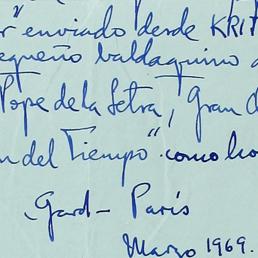 r" enviado desde KRIT
equeño baldaquino d
Pope de la Setra, Gran C
n del Tiempo" como ho
-Gard- París
Marzo 1969.